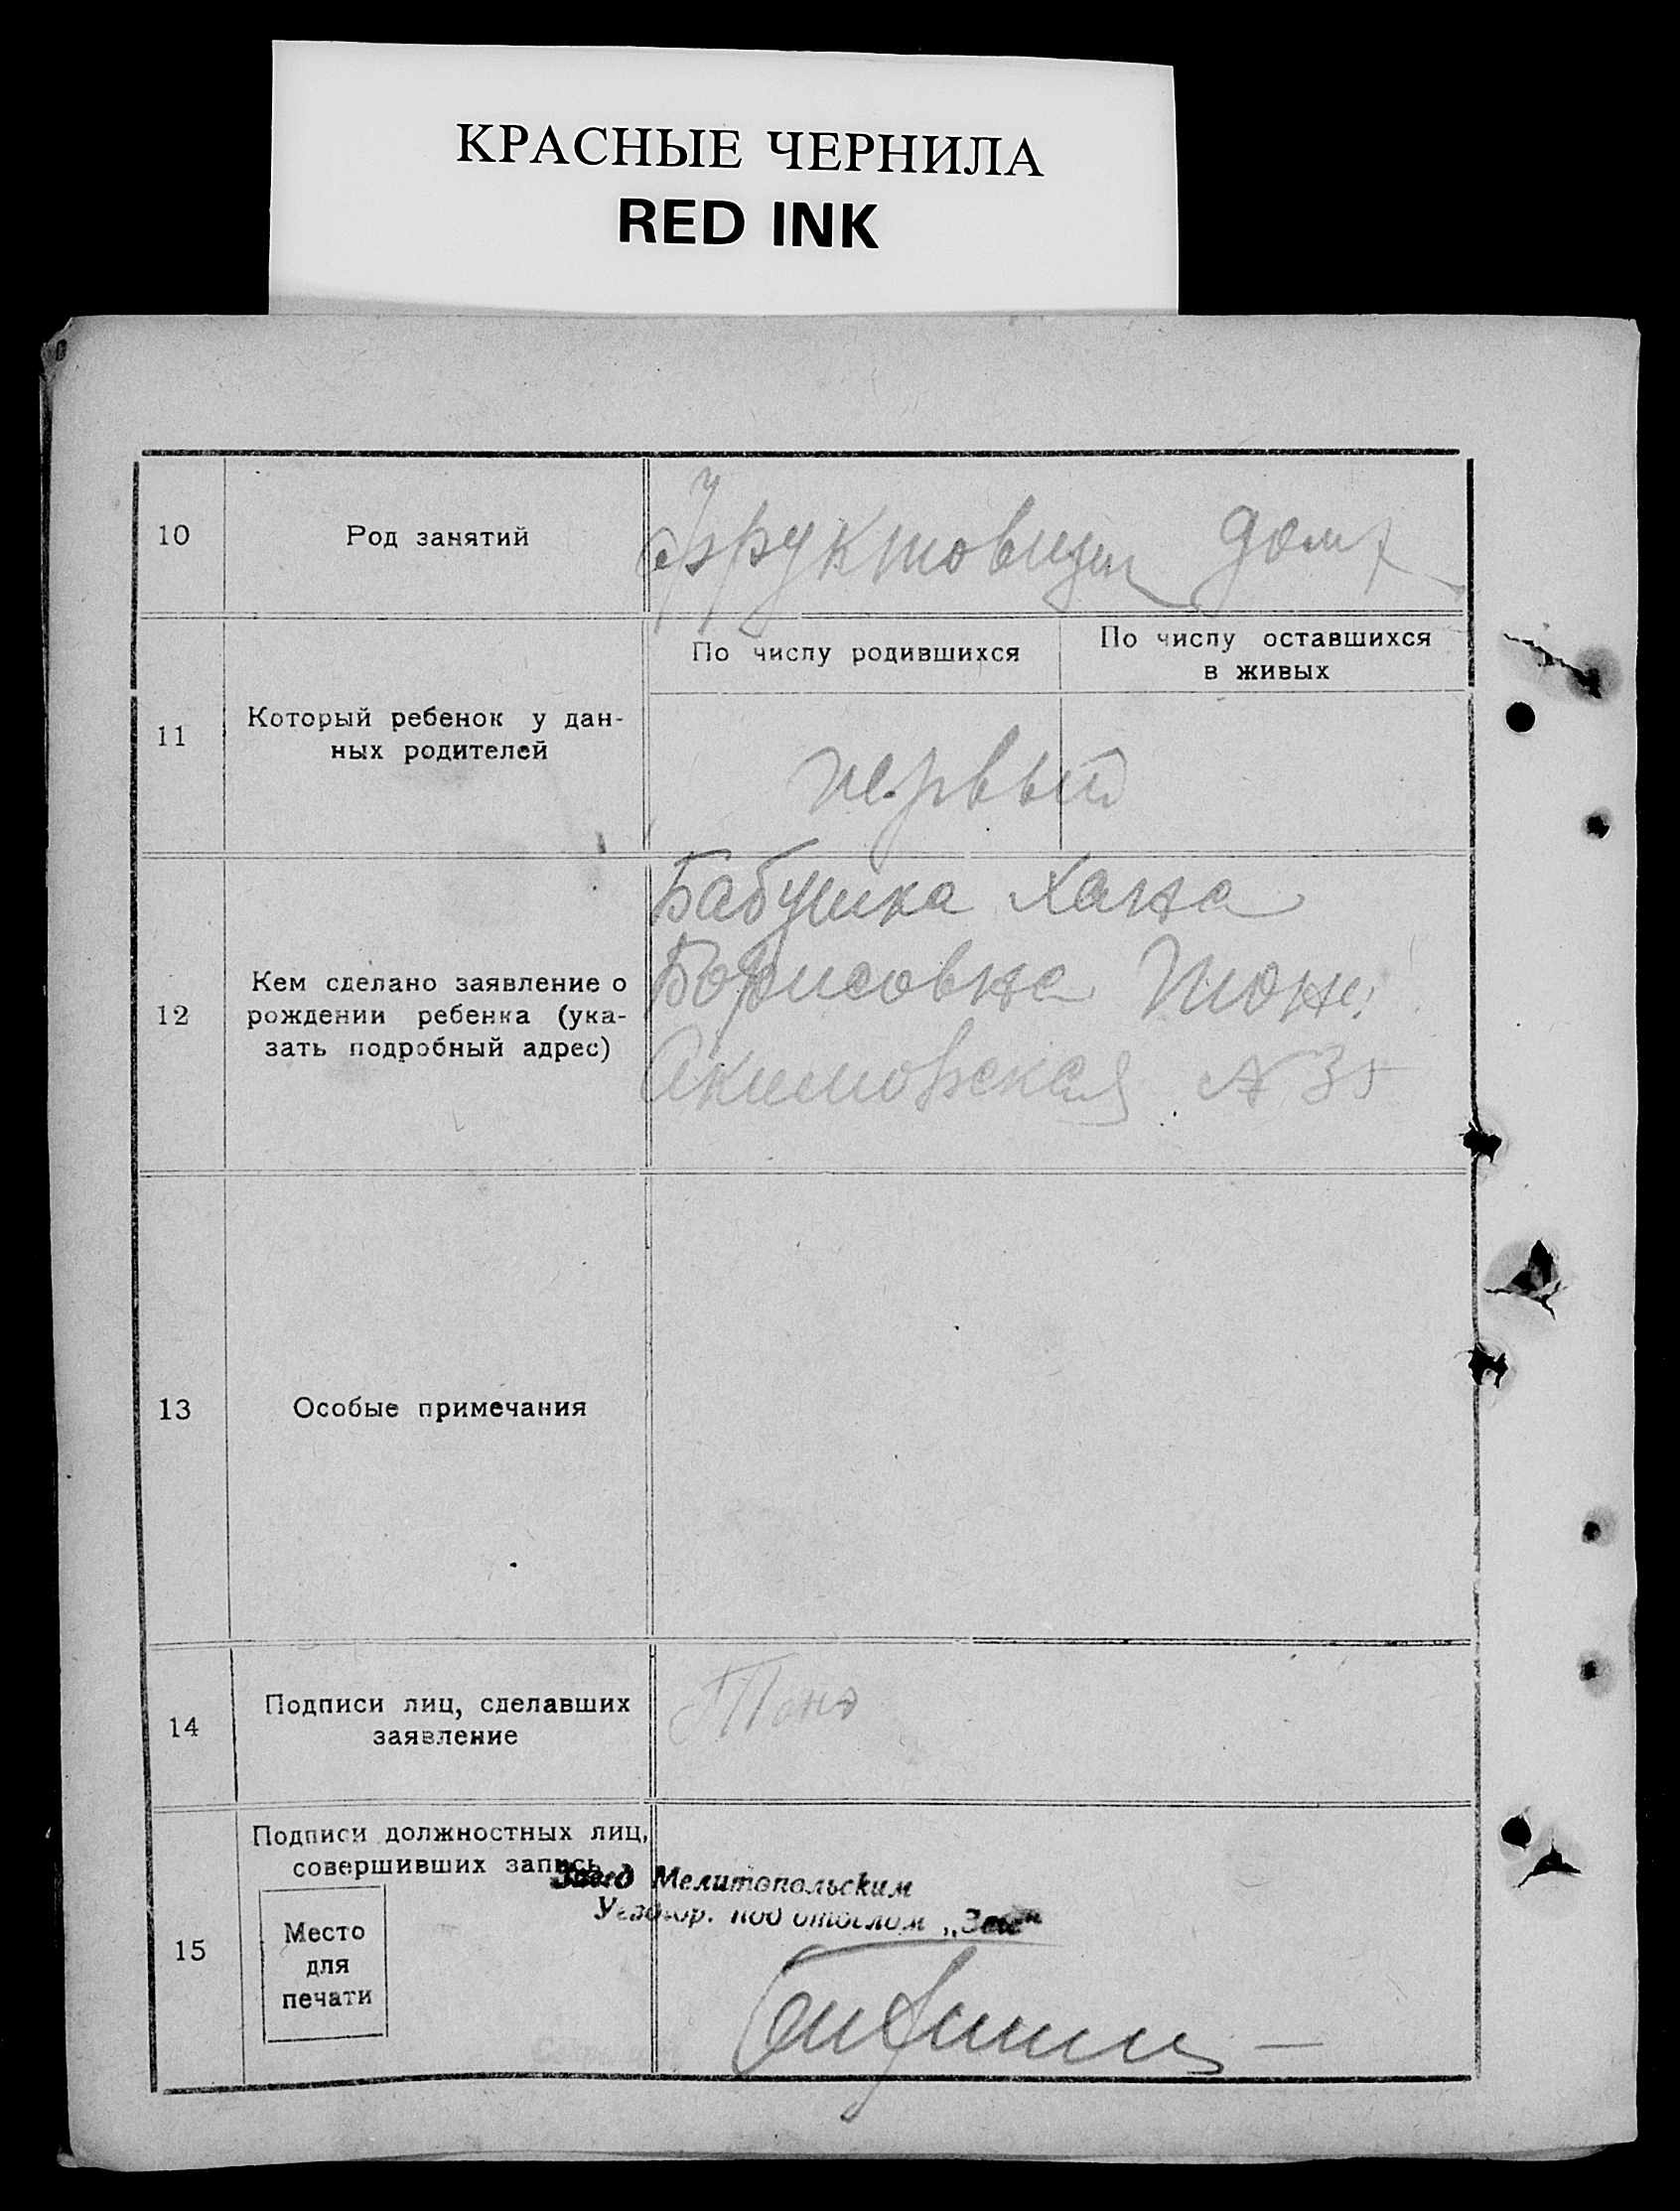 КРАСНЫЕ ЧЕРНИЛА
RED INK
10
Род занятий
Фруктовщик дом х
11
Который ребенок у дан-
ных родителей
По числу родившихся
По числу оставшихся
в живых
первый
12
Кем сделано заявление о
рождении ребенка (ука-
зать подробный адрес)
Бабушка Хана
Борисовна
Акимовская № 35
13
Особые примечания
14
Подписи лиц, сделавших
заявление
15
Подписи должностных лиц,
совершивших запись
Место
для
печати
Завед Мелитопольским
Уездгор. под отделом „Загс“